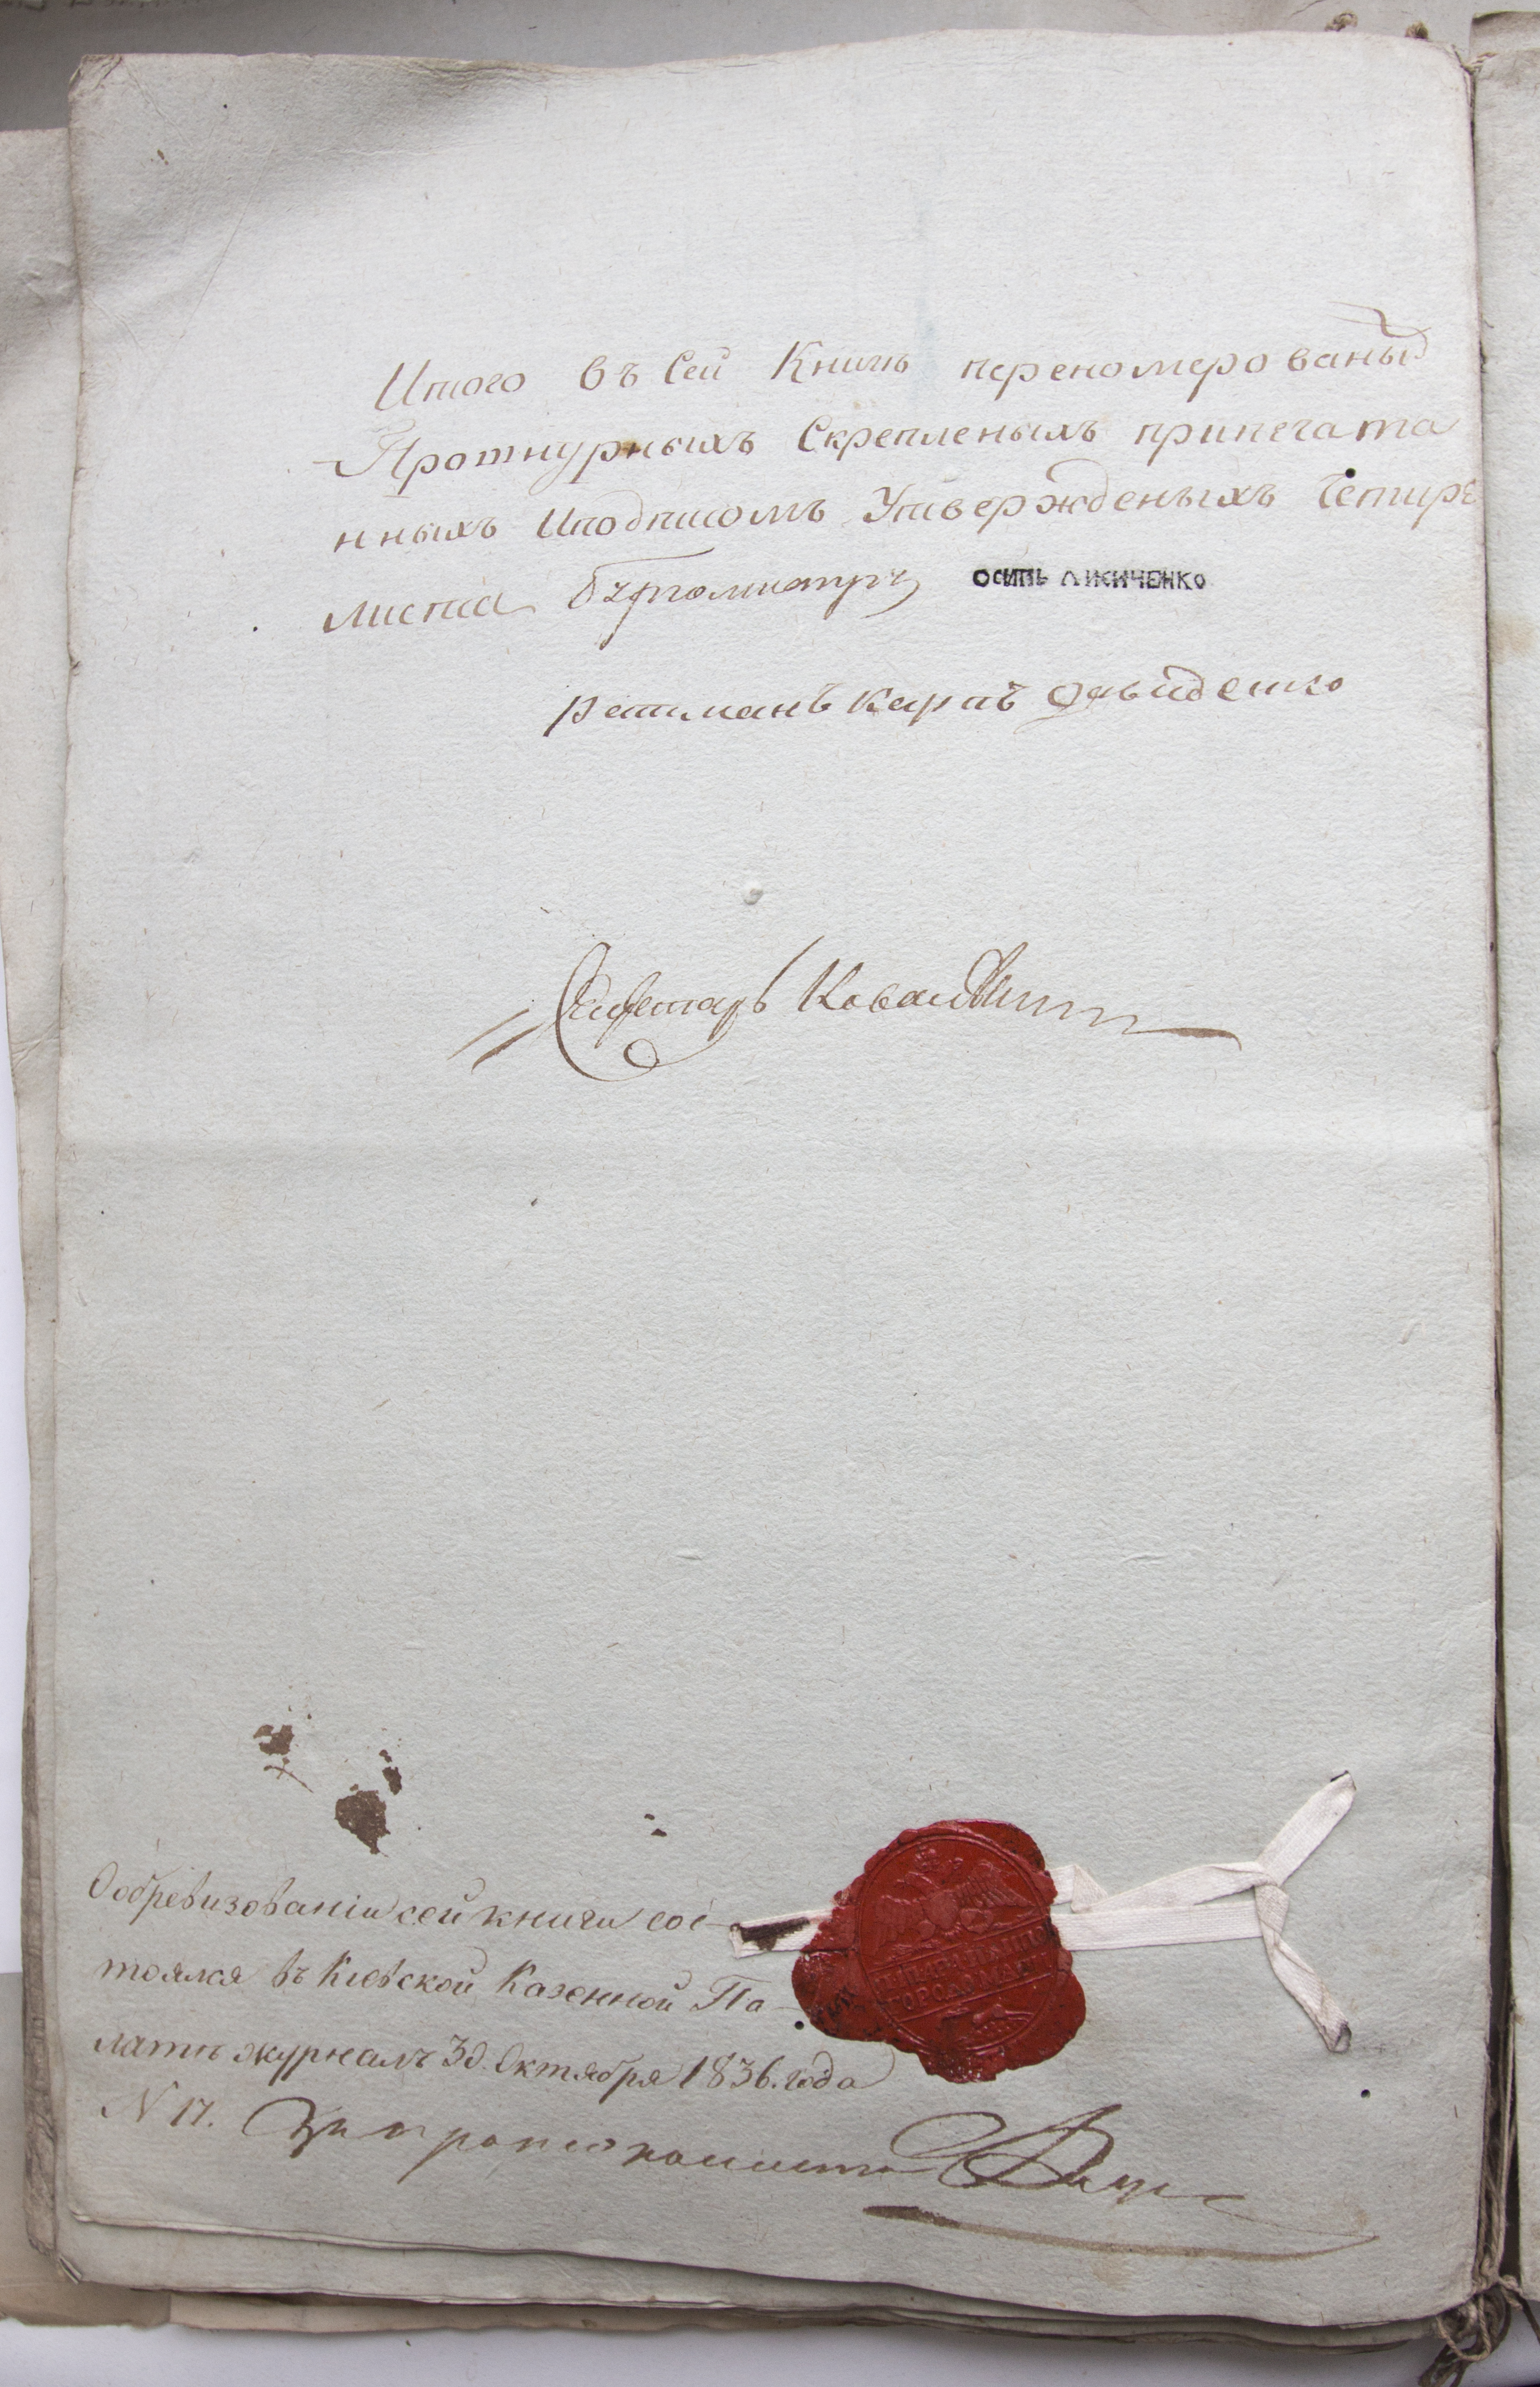 Итого въ Сей Книгѣ переномерованых
Прошнурныхъ Скрепленыхъ припечата
нныхъ Иподписомъ Утвержденыхъ Четире
листа Бургомистръ ОСИПЬ ЛИСИЧЕНКО
Ратманъ Карпъ Давиденко
Секретарь
Обревизованіи сей книги сос-
тоялся въ Кіевской Казенной Па-
латѣ журналъ 30. Октября 1836. года
N 17.